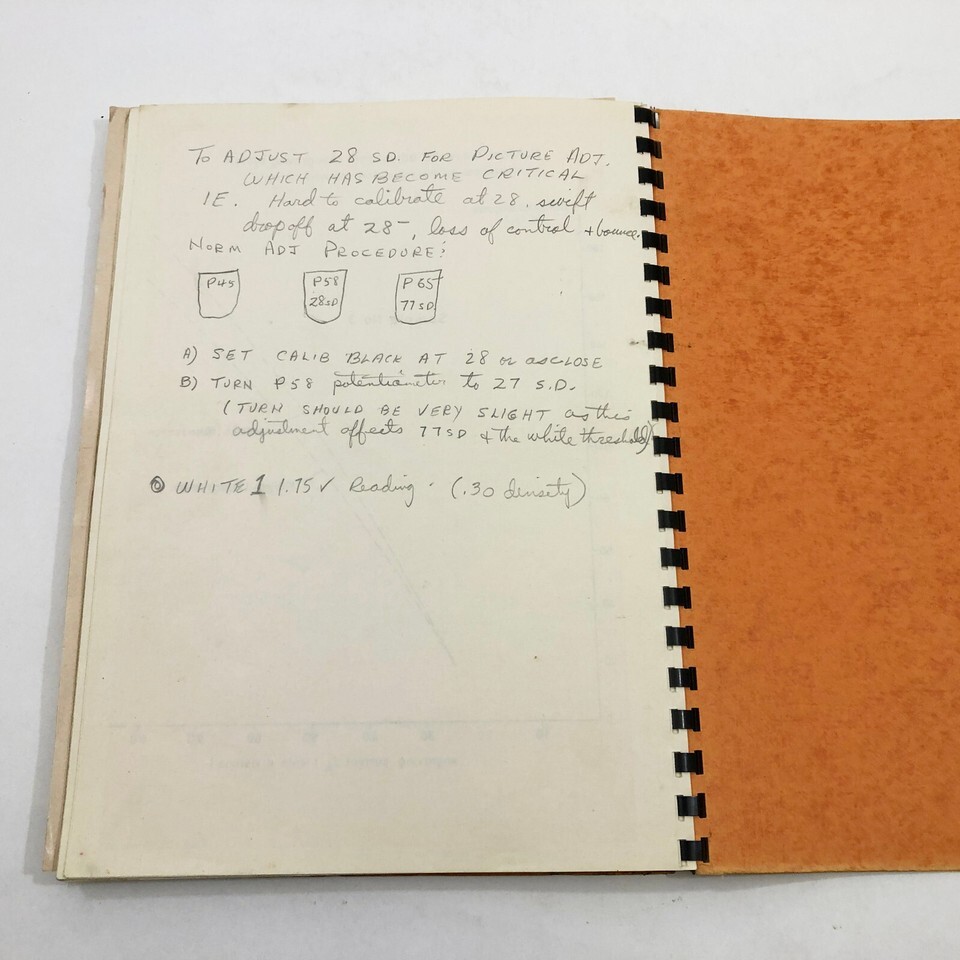 To ADJUST 28 SD. FOR PICTURE ADJ.
WHICH HAS BECOME CRITICAL
IE. Hard to calibrate at 28. swift
dropoff at 28-, loss of control + bounce.
NORM ADJ PROCEDURE:
P45 P58 P65
28SD 77SD
A) SET CALIB BLACK AT 28 or as CLOSE
B) TURN P58 potentiometer to 27 S.D.
(TURN SHOULD BE VERY SLIGHT as this
adjustment affects 77SD + the white threshold)
WHITE 1 1.75V Reading. (.30 density)